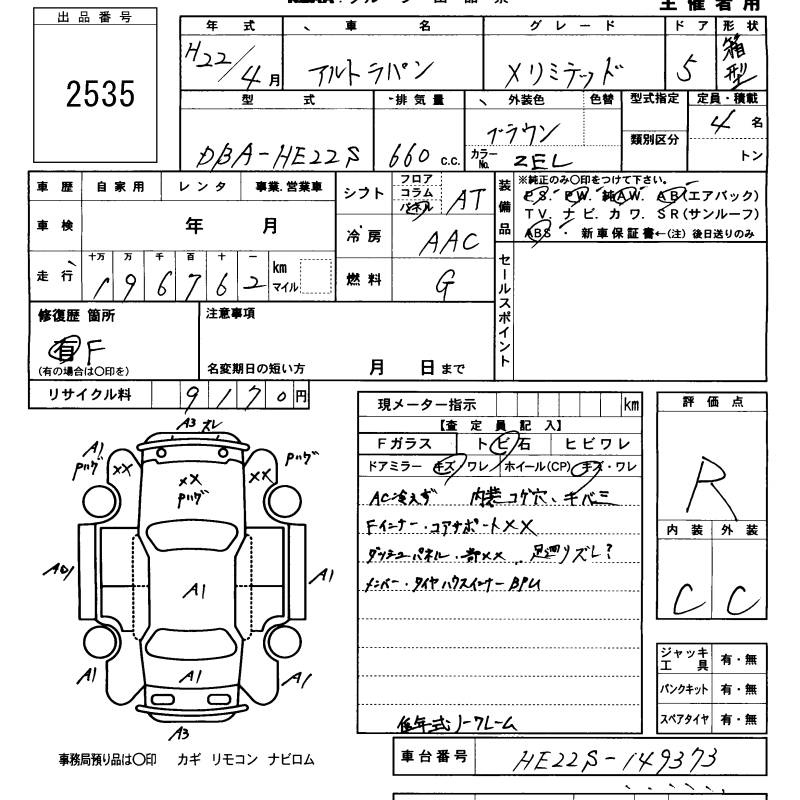 主催者用
出品番号
2535
年式 車名 グレード ドア 形状
H22/4月 アルトラパン Xリミテッド 5 箱型
型式 排気量 外装色 色替 型式指定 定員・積載
DBA-HE22S 660 c.c. ブラウン 類別区分 4名
カラーNo. ZEL トン
車歴 自家用 レンタ 事業.営業車
シフト フロア コラム パネル AT
装備品 ※純正のみ○印をつけて下さい。
PS. PW. 純AW. AB(エアバック)
TV. ナビ. カワ. SR(サンルーフ)
ABS ・ 新車保証書←(注) 後日送りのみ
車検 年 月
冷房 AAC
走行 十万 万 千 百 十 一 km マイル
196762
燃料 G
セールスポイント
修復歴 箇所 注意事項
有 F
(有の場合は○印を) 名変期日の短い方 月 日まで
リサイクル料 9170円
現メーター指示 km
【査定員記入】
Fガラス トビ石 ヒビワレ
ドアミラー キズ/ワレ ホイール(CP) キズ・ワレ
AC冷えず 内装コゲ穴、キバミ
Fインナー・コアサポートXX
ダッシュパネル・一部XX 足廻リズレ?
メンバー・タイヤハウスインナーBPU
低年式ノークレーム
評価点
R
内装 外装
C C
ジャッキ工具 有・無
パンクキット 有・無
スペアタイヤ 有・無
A3 ズレ
A1 Pハゲ XX
XX Pハゲ
XX Pハゲ
A01
A1
A1
A1
A1
A1
A3
事務局預り品は○印 カギ リモコン ナビロム
車台番号 HE22S-149373